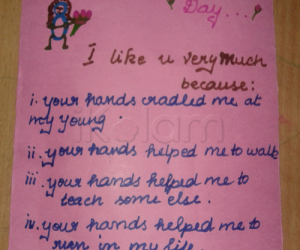 Day....
I like u very much
because:
i. your hands cradled me at
my young.
ii. your hands helped me to walk
iii. your hands helped me to
teach some else.
iv. your hands helped me to
run in my life